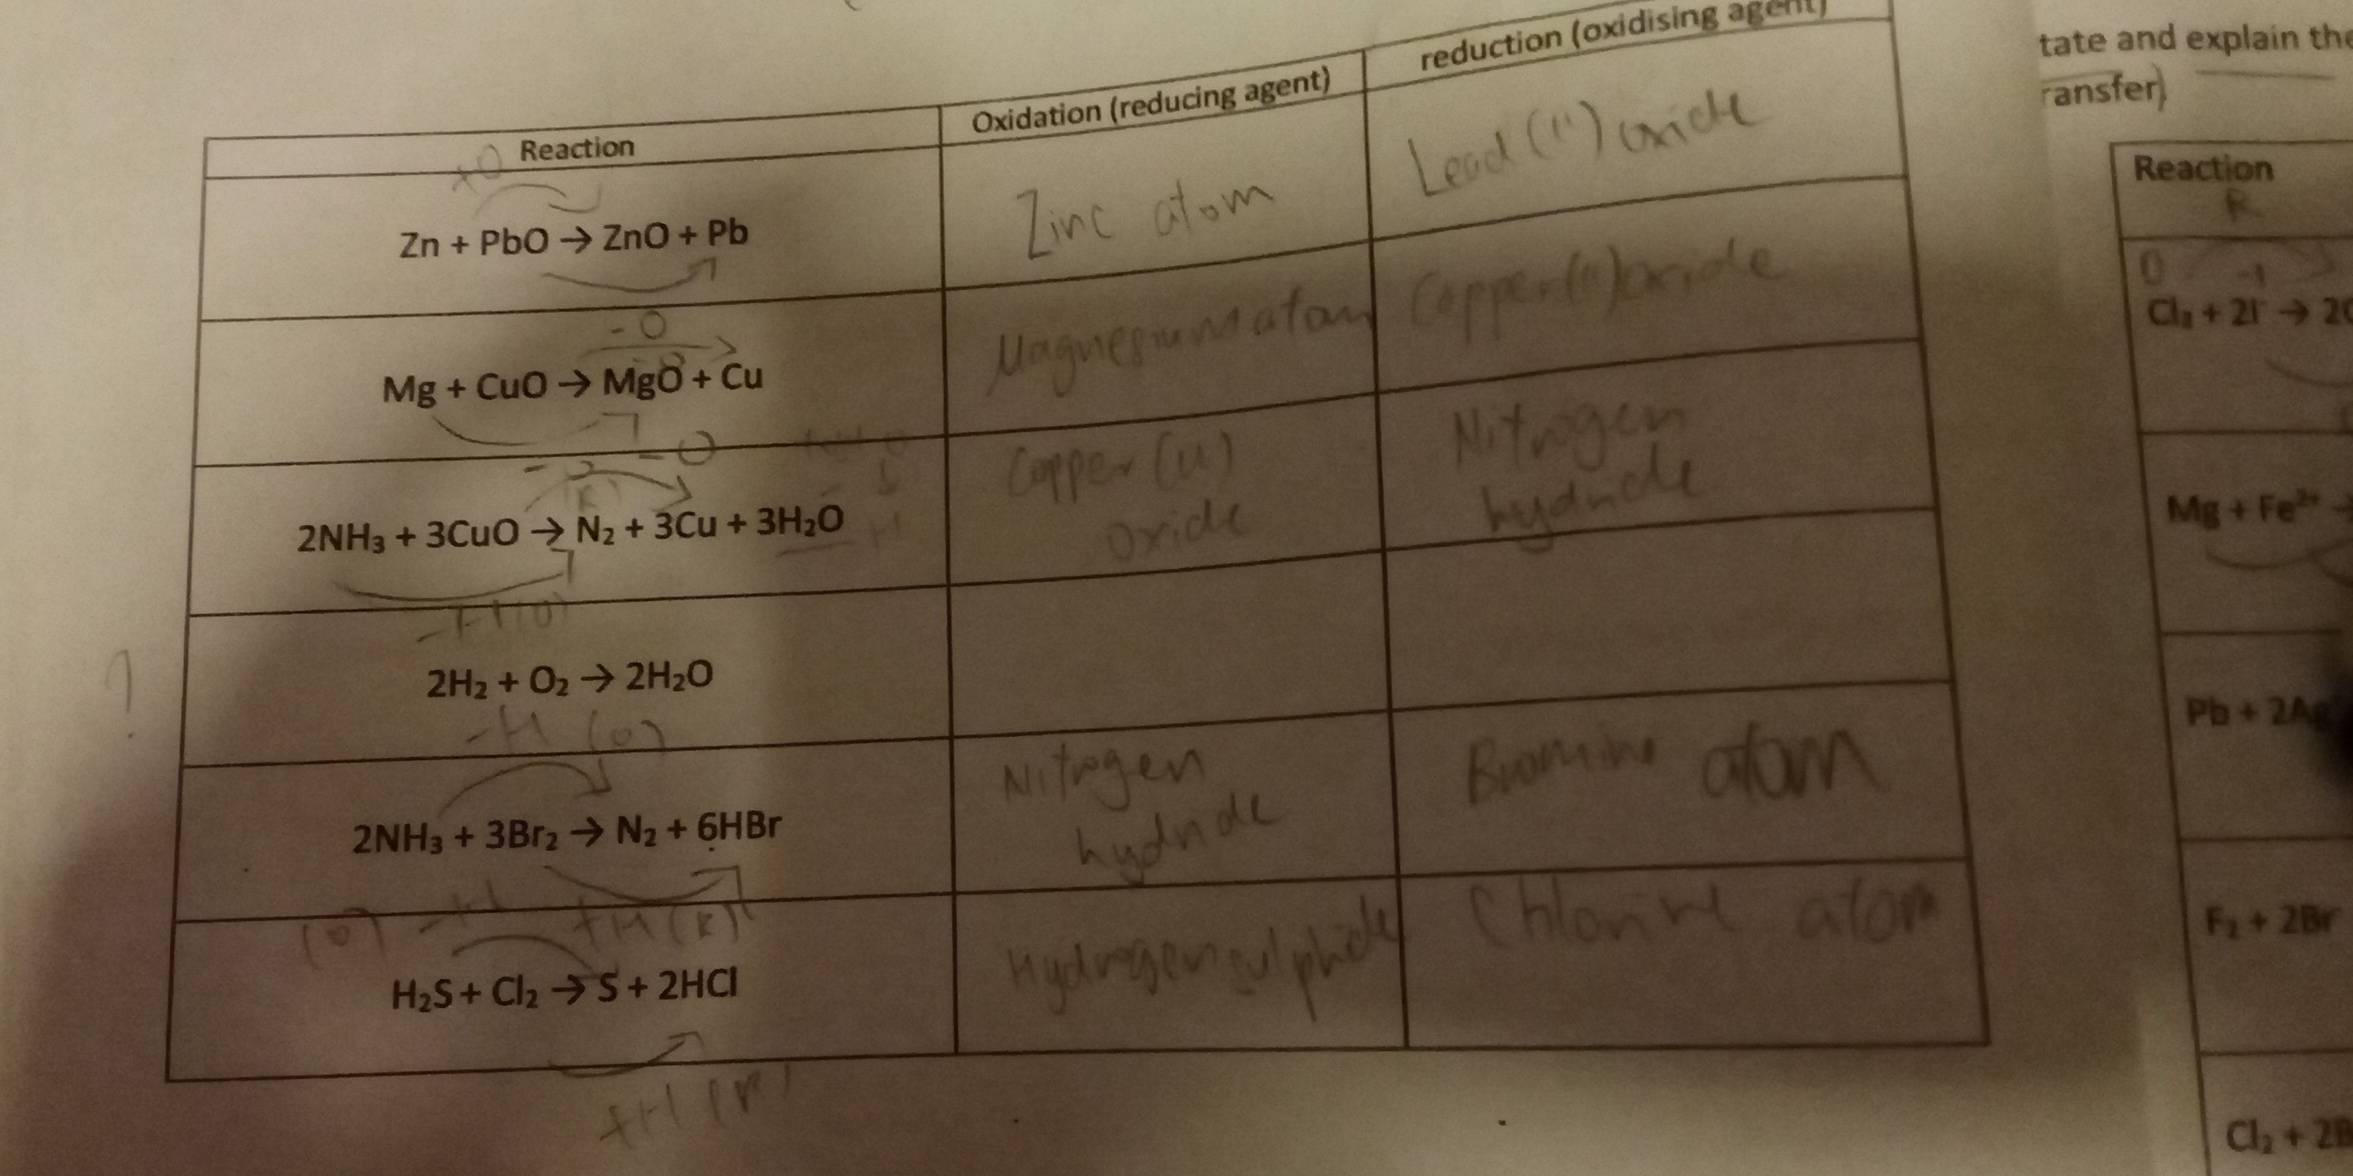 Reaction
Oxidation (reducing agent)
reduction (oxidising agent)
+O
Zn + PbO → ZnO + Pb
Zinc atom
Lead (II) oxide
-O
Mg + CuO → MgO + Cu
Magnesium atom
Copper(II)oxide
-O
2NH₃ + 3CuO → N₂ + 3Cu + 3H₂O
Copper (II)
oxide
Nitrogen
hydride
-H (O)
?
2H₂ + O₂ → 2H₂O
-H (O)
2NH₃ + 3Br₂ → N₂ + 6HBr
Nitrogen
hydride
Bromine atom
+H (R)
(O) -H
H₂S + Cl₂ → S + 2HCl
Hydrogen sulphide
Chlorine atom
+H (R)
tate and explain the
ransfer)
Reaction
R
0 -1
Cl₂ + 2I⁻ → 2C
Mg + Fe²⁺ →
Pb + 2Ag
F₂ + 2Br
Cl₂ + 2B